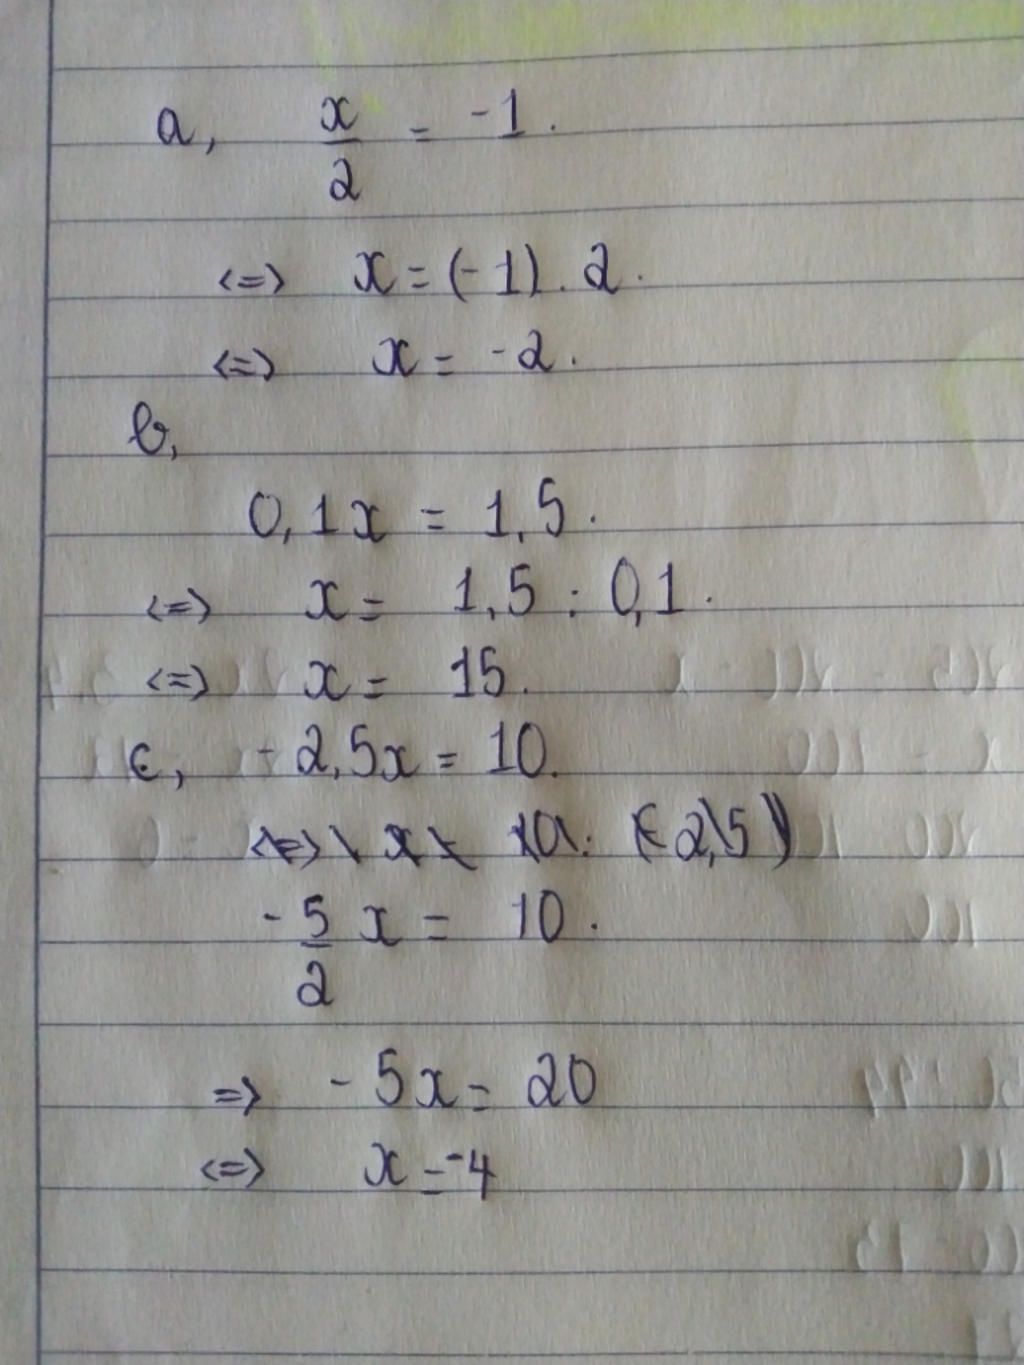 a, x/2 = -1.
<=> x = (-1) . 2.
<=> x = -2.
b,
0,1x = 1,5.
<=> x = 1,5 : 0,1.
<=> x = 15.
c, -2,5x = 10.
<=> x = 10 : (-2,5)
-5/2 x = 10.
=> -5x = 20
<=> x = -4